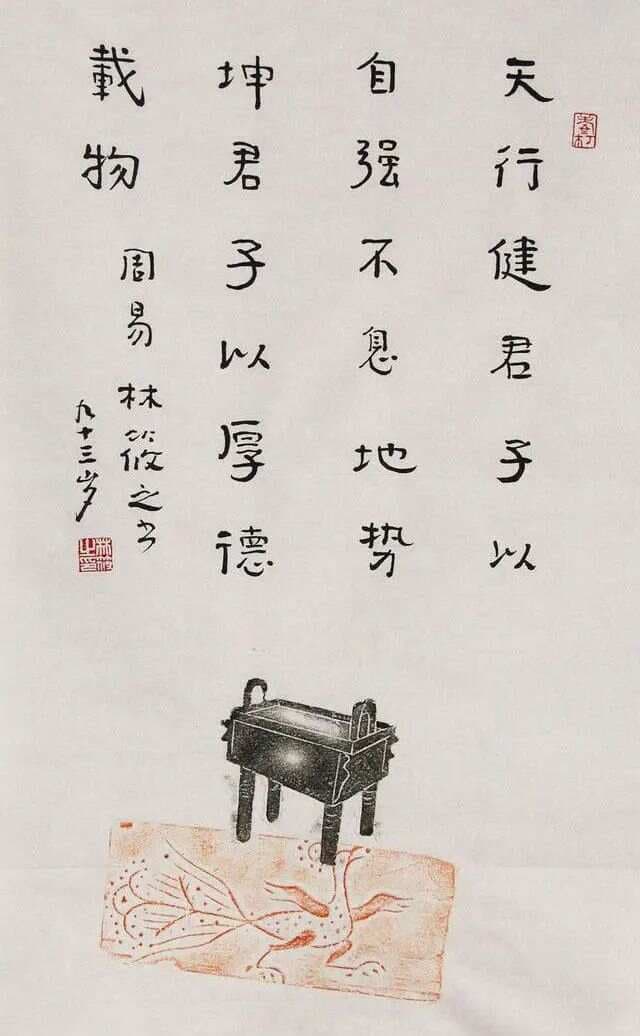 天行健君子以
自强不息地势
坤君子以厚德
載物
周易 林筱之书
九十三岁
林筱之印